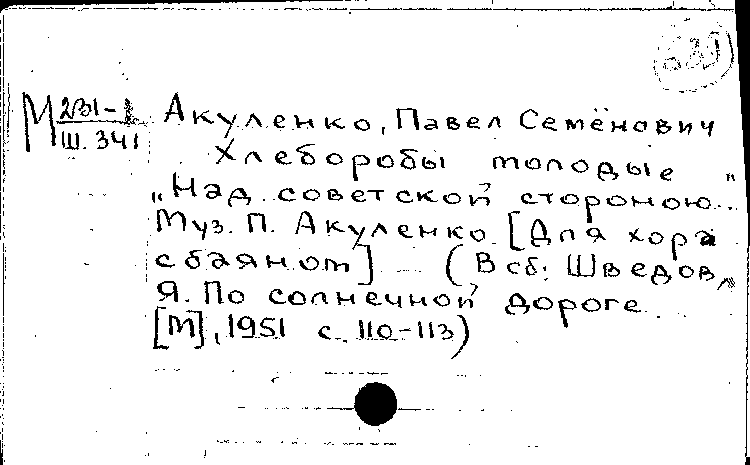 М 231-1
Ш. 341
Акуленко, Павел Семёнович
Хлеборобы молодые
„Над советской стороною..."
Муз. П. Акуленко [Для хора
с баяном] (В сб: Шведов,
Я. По солнечной дороге
[М], 1951 с. 110-113)